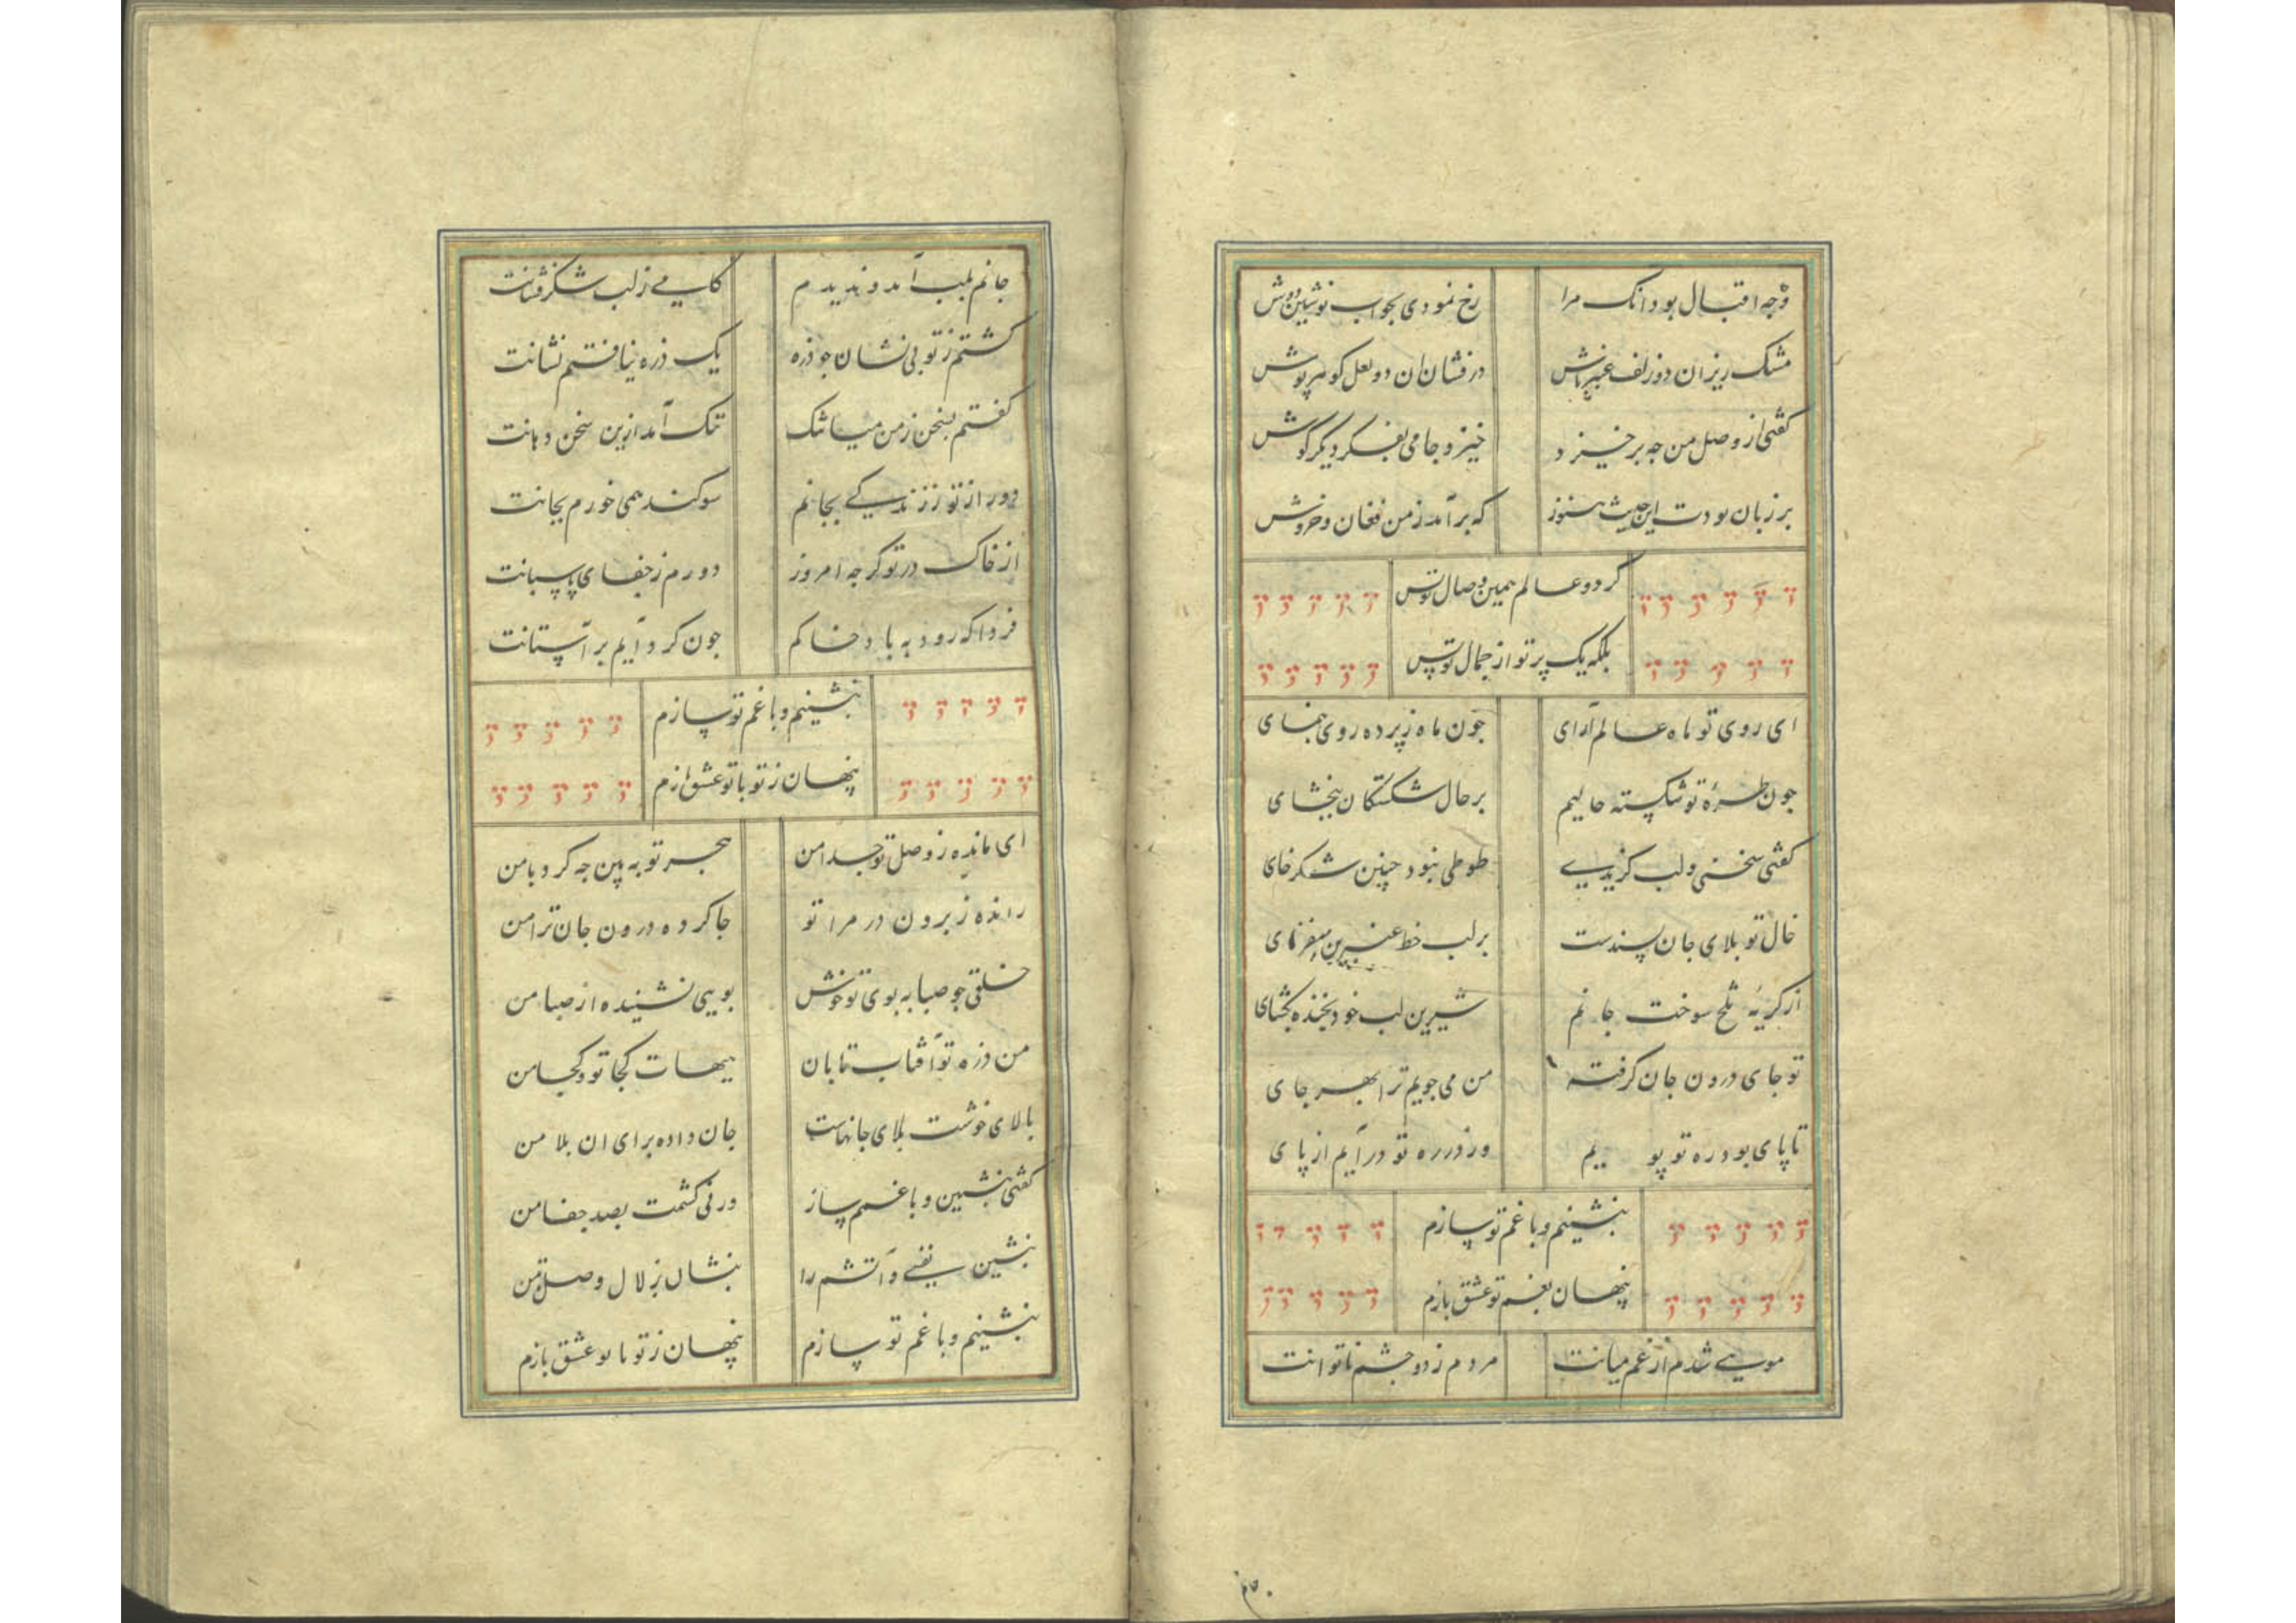 وجه اقبال بود انک مرا رخ نمودی بخواب نوشین دوش
مشک ریزان دو زلف عنبر پاش در فشان ان دو لعل گوهر پوش
گفتی از وصل من چه برخیزد خیز و جامی بفکر دیگر گوش
بر زبان بودت این حدیث هنوز که برآمد ز من فغان و خروش
گر دو عالم همین وصال توبس
بلکه یک پرتو از جمال توبس
ای روی تو ماه عالم آرای چون ماه ز پرده روی بنمای
چون طرهٔ تو شکسته حالیم بر حال شکستگان ببخشای
گفتی سخنی و لب گزیدی طوطی نبود چنین شکر خای
خال تو بلای جان پسندست بر لب خط عنبرین میفزای
از گریهٔ تلخ سوخت جانم شیرین لب خود بخنده بگشای
تو جای درون جان گرفته من می جویم ترا بهر جای
تا پای بود ره تو پویم ور در ره تو درآیم از پای
بنشینم و با غم تو سازم
پنهان بغم تو عشق بازم
مویی شدم از غم میانت مردم ز دو چشم ناتوانت
جانم بلب آمد و ندیدم کامی ز لب شکرفشانت
گشتم ز تو بی نشان چو ذره یک ذره نیافتم نشانت
گفتم بسخن ز من میا تنک تنک آمد ازین سخن دهانت
دور از تو ز زندگی بجانم سوکند همی خورم بجانت
از خاک در تو گرچه امروز دورم ز جفای پاسبانت
فردا که رود به باد خاکم چون گرد آیم بر آستانت
بنشینم و با غم تو سازم
پنهان ز تو با تو عشق بازم
ای مانده ز وصل تو جدا من هجر تو به بین چه کرد با من
رانده ز برون در مرا تو جا کرده درون جان ترا من
خلقی چو صبا به بوی تو خوش بویی نشنیده از صبا من
من ذره تو آفتاب تابان هیهات کجا تو و کجا من
بالای خوشت بلای جانهاست جان داده برای ان بلا من
گفتی بنشین و با غمم ساز ورنی کشمت بصد جفا من
بنشین نفسی و آتشم را بنشان بزلال وصل تا من
بنشینم و با غم تو سازم پنهان ز تو با تو عشق بازم